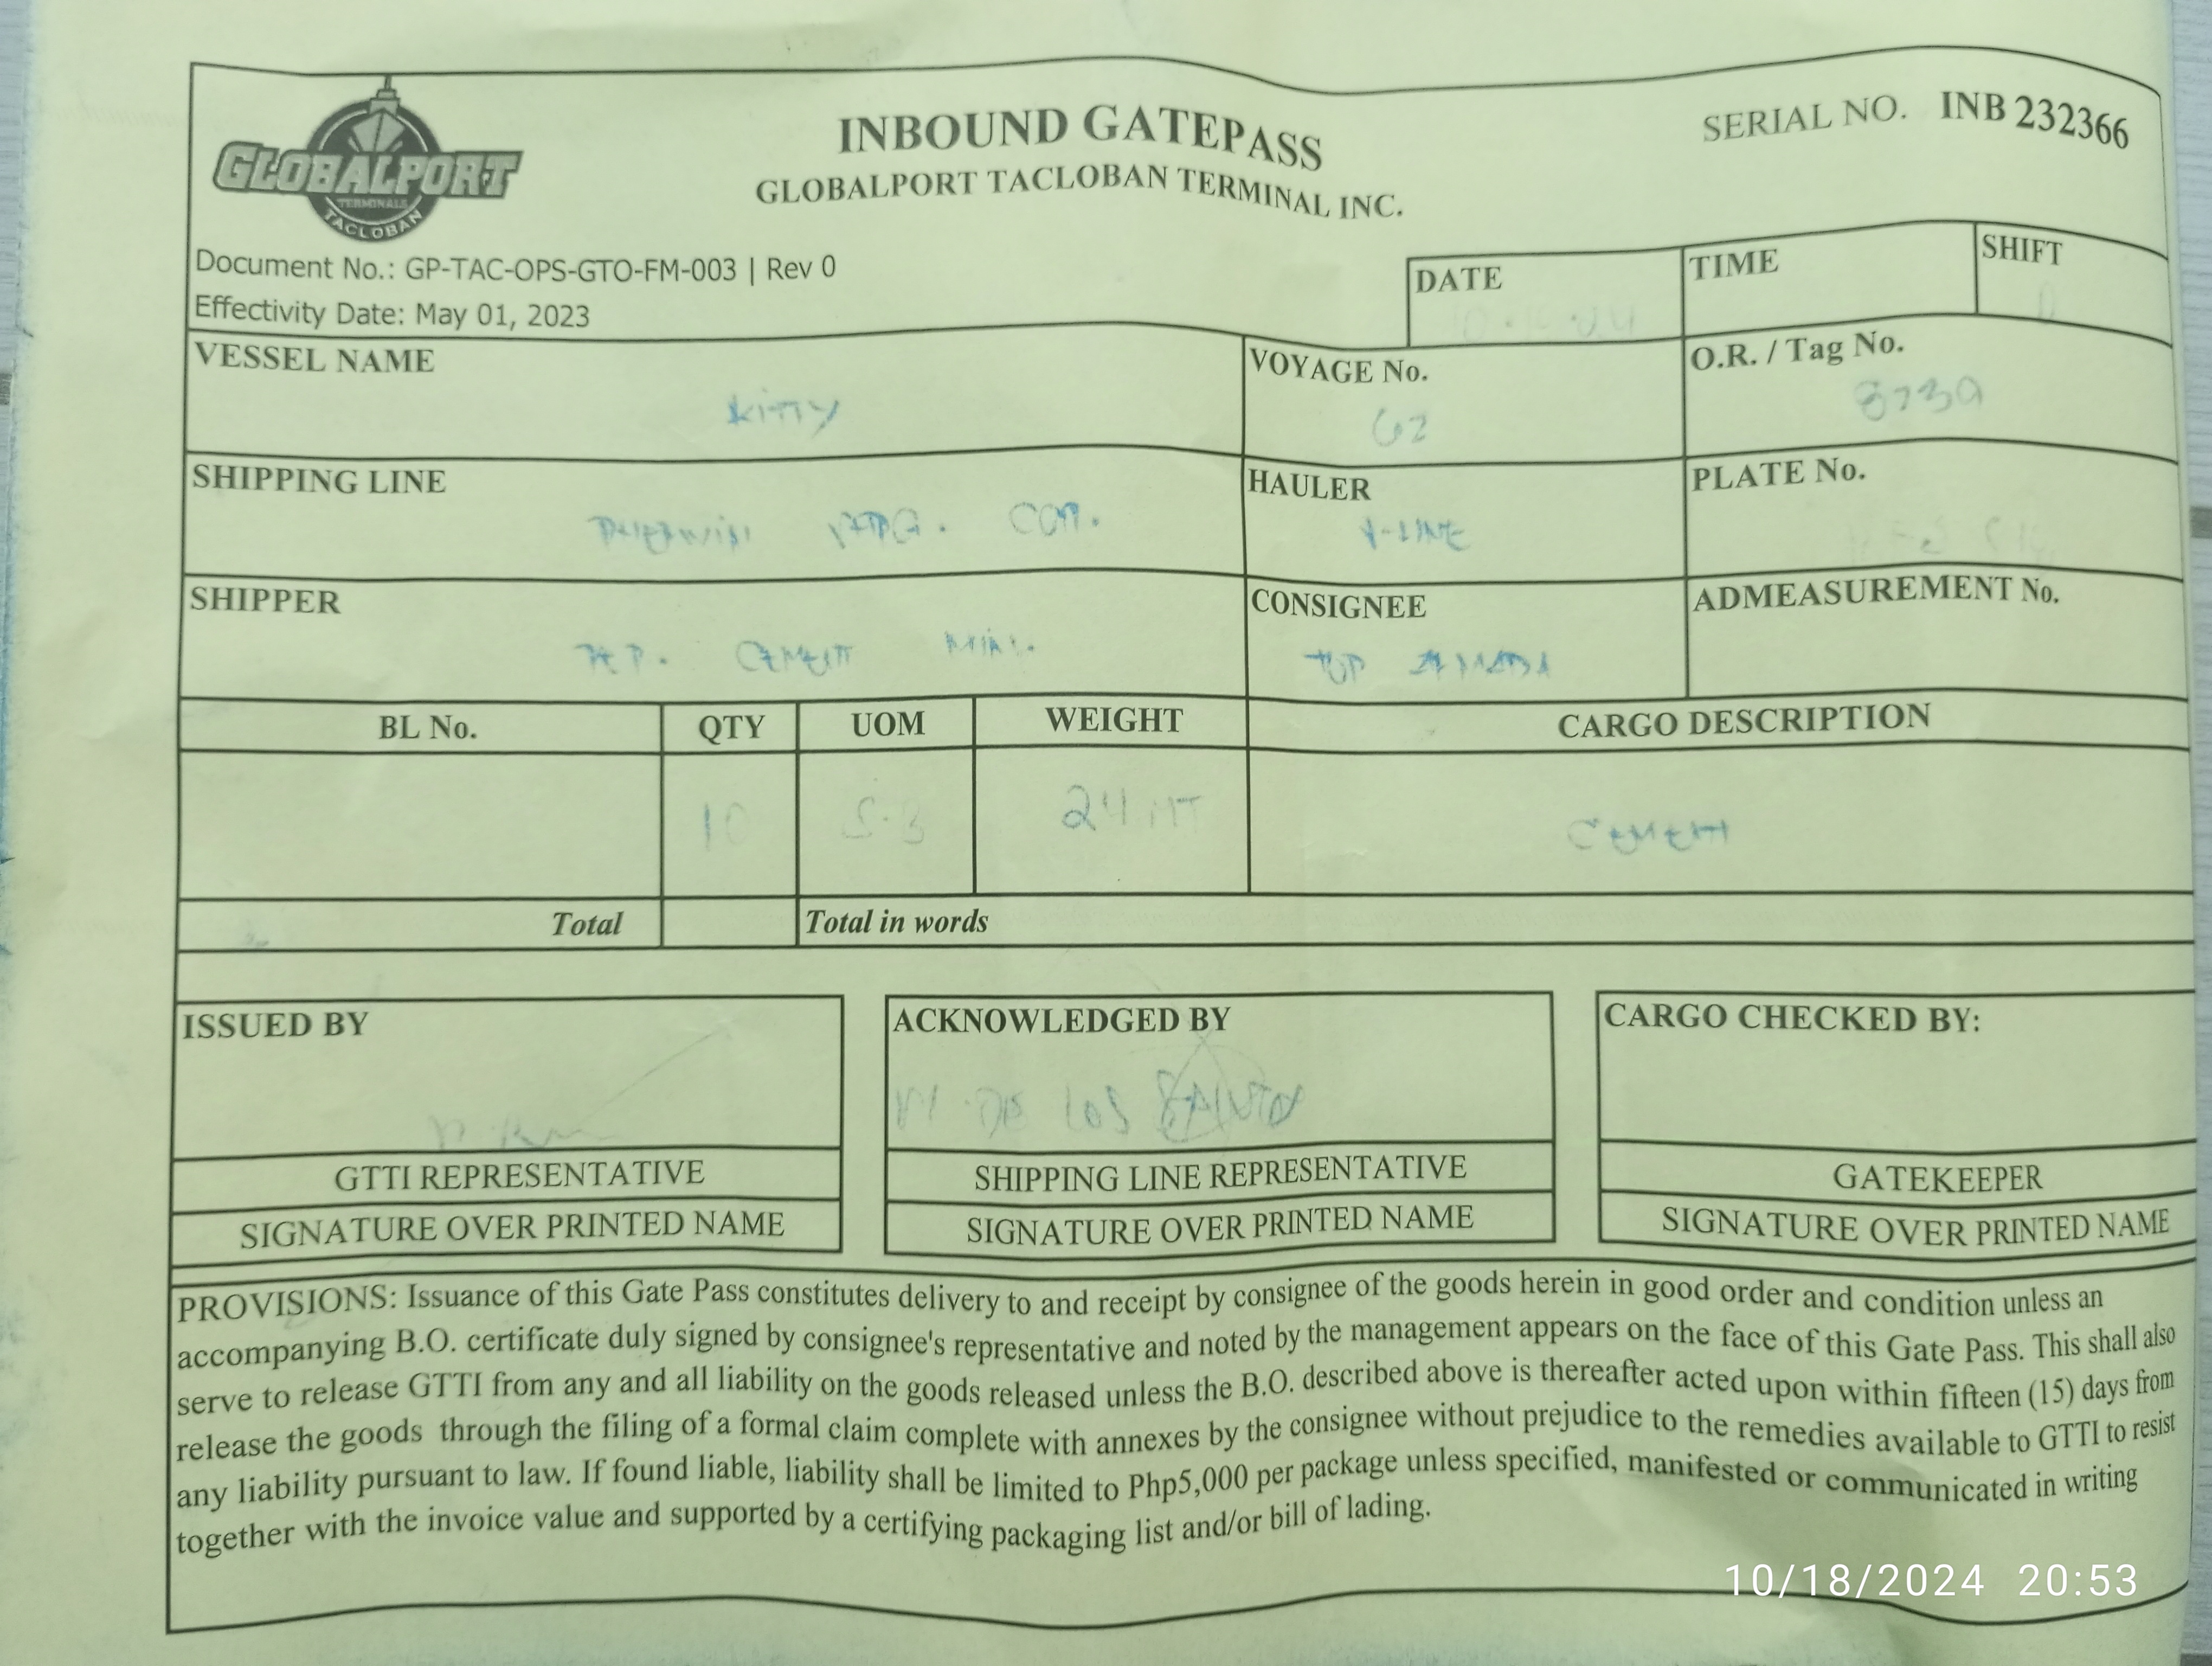 GLOBALPORT
TERMINALS
TACLOBAN
INBOUND GATEPASS
GLOBALPORT TACLOBAN TERMINAL INC.
SERIAL NO. INB 232366
Document No.: GP-TAC-OPS-GTO-FM-003 | Rev 0
Effectivity Date: May 01, 2023
DATE
TIME
SHIFT
VESSEL NAME
KITTY
VOYAGE No.
62
O.R. / Tag No.
SHIPPING LINE
HAULER
PLATE No.
SHIPPER
CEMENT
CONSIGNEE
TOP
ADMEASUREMENT No.
BL No. QTY UOM WEIGHT CARGO DESCRIPTION
10 24 MT CEMENT
Total
Total in words
ISSUED BY
ACKNOWLEDGED BY
DE LOS SANTOS
CARGO CHECKED BY:
GTTI REPRESENTATIVE
SIGNATURE OVER PRINTED NAME
SHIPPING LINE REPRESENTATIVE
SIGNATURE OVER PRINTED NAME
GATEKEEPER
SIGNATURE OVER PRINTED NAME
PROVISIONS: Issuance of this Gate Pass constitutes delivery to and receipt by consignee of the goods herein in good order and condition unless an
accompanying B.O. certificate duly signed by consignee's representative and noted by the management appears on the face of this Gate Pass. This shall also
serve to release GTTI from any and all liability on the goods released unless the B.O. described above is thereafter acted upon within fifteen (15) days from
release the goods through the filing of a formal claim complete with annexes by the consignee without prejudice to the remedies available to GTTI to resist
any liability pursuant to law. If found liable, liability shall be limited to Php5,000 per package unless specified, manifested or communicated in writing
together with the invoice value and supported by a certifying packaging list and/or bill of lading.
10/18/2024 20:53